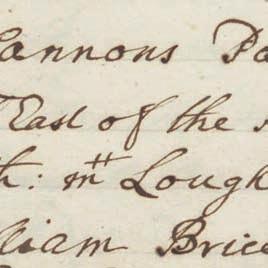 Cannons Pa
East of the
th: mtt Lough
lliam Brice